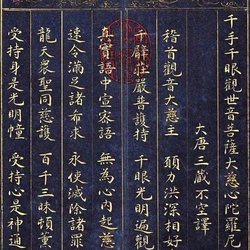 千手千眼觀世音菩薩大慈心陀羅尼
大唐三藏不空譯
稽首觀音大慈主 願力洪深相好
千臂莊嚴普護持 千眼光明遍觀
真實語中宣密語 無為心內起慈
速令滿足諸希求 永使滅除諸罪
龍天衆聖同慈護 百千三昧頓熏
受持身是光明幢 受持心是神通